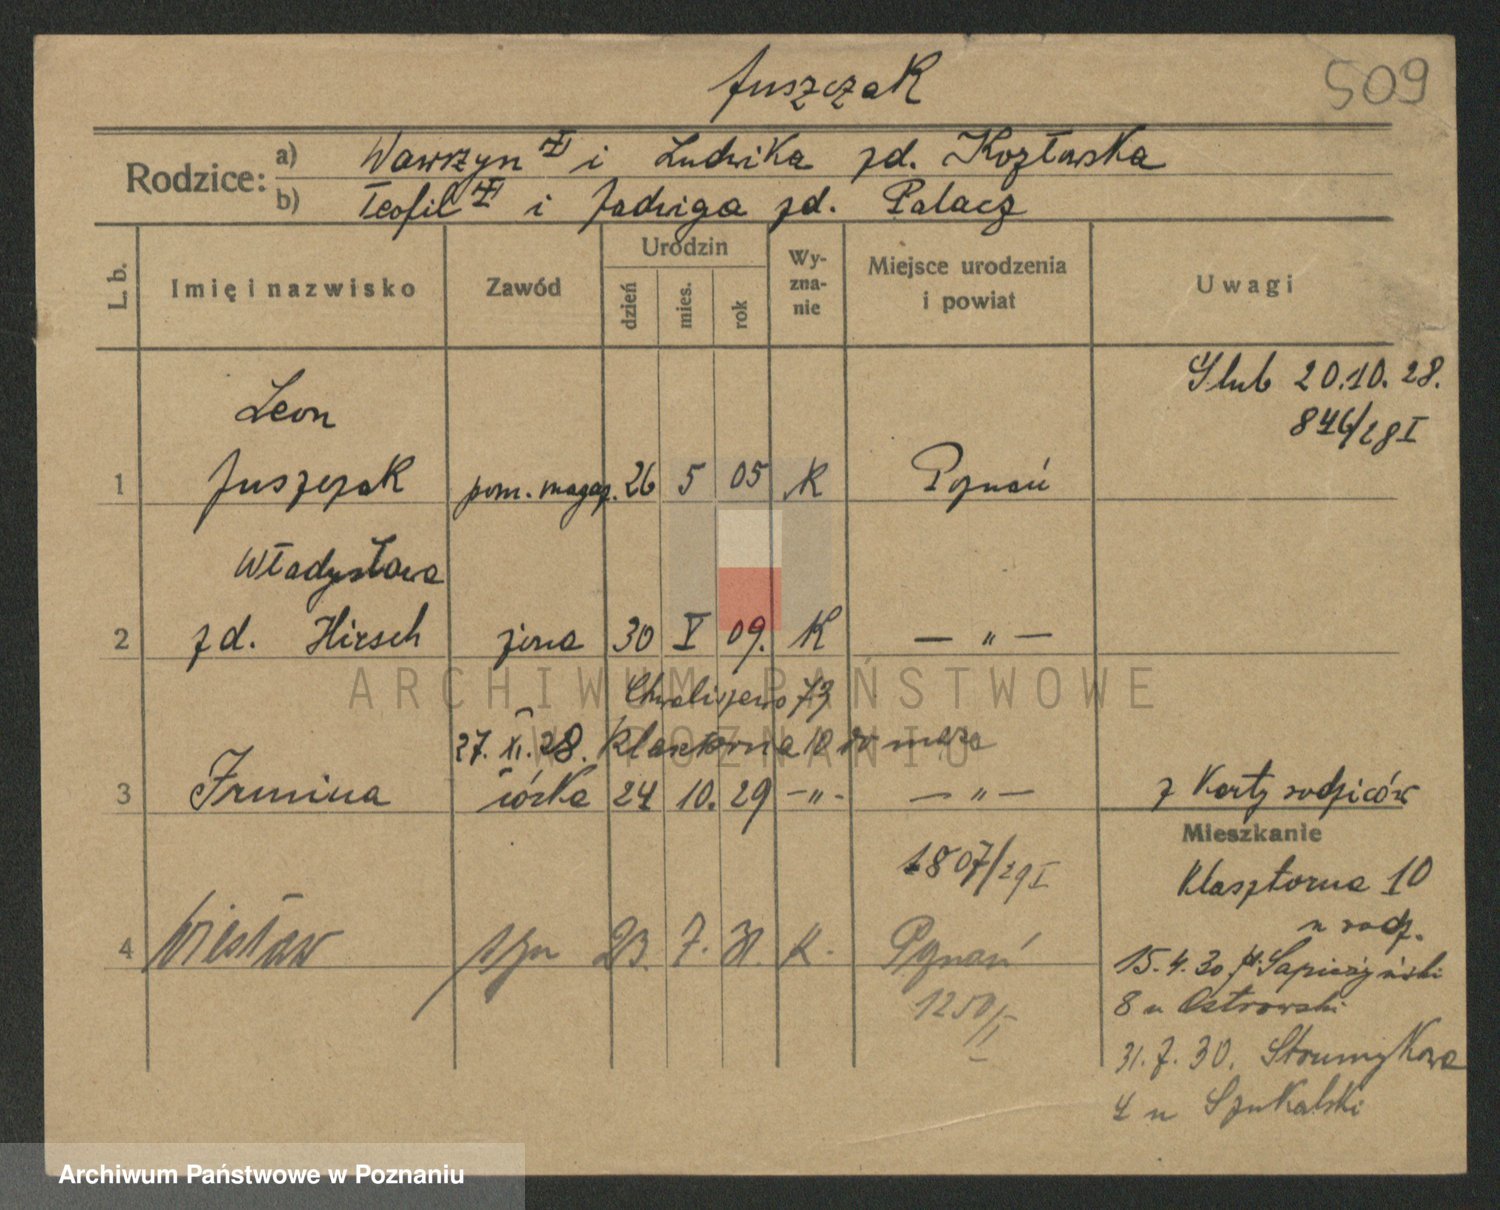 Juszczak
509
Rodzice: a) Wawrzyn i Ludwika zd. Kozłowska
b) Teofil i Jadwiga zd. Palacz
L. b.
Imię i nazwisko
Zawód
Urodzin
dzień
mies.
rok
Wy-
zna-
nie
Miejsce urodzenia
i powiat
Uwagi
Ślub 20.10.28.
846/28 I
Leon
1 Juszczak pom. magaz. 26 5 05 K Poznań
Władysława
2 zd. Hirsch żona 30 V 09. K — „ —
Chwaliszewo 73
27. XI. 28. Klasztorna 10 do męża
3 Irmina córka 24 10. 29 — „ - — „ — z Karty rodziców
1807/29 I
4 Wiesław syn 23. 7. 31. K. Poznań
1250/I
Mieszkanie
Klasztorna 10
u rodz.
15.4.30 pl. Sapieżyński
8 u Ostrowski
31.7.30. Strumykowa
4 u Szukalski
ARCHIWUM PAŃSTWOWE
W POZNANIU
Archiwum Państwowe w Poznaniu